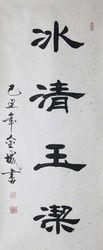 冰清玉潔
己丑年金城書